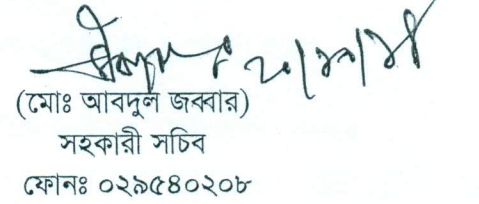 (মোঃ আবদুল জব্বার)
সহকারী সচিব
ফোনঃ ০২৯৫৪০২০৮